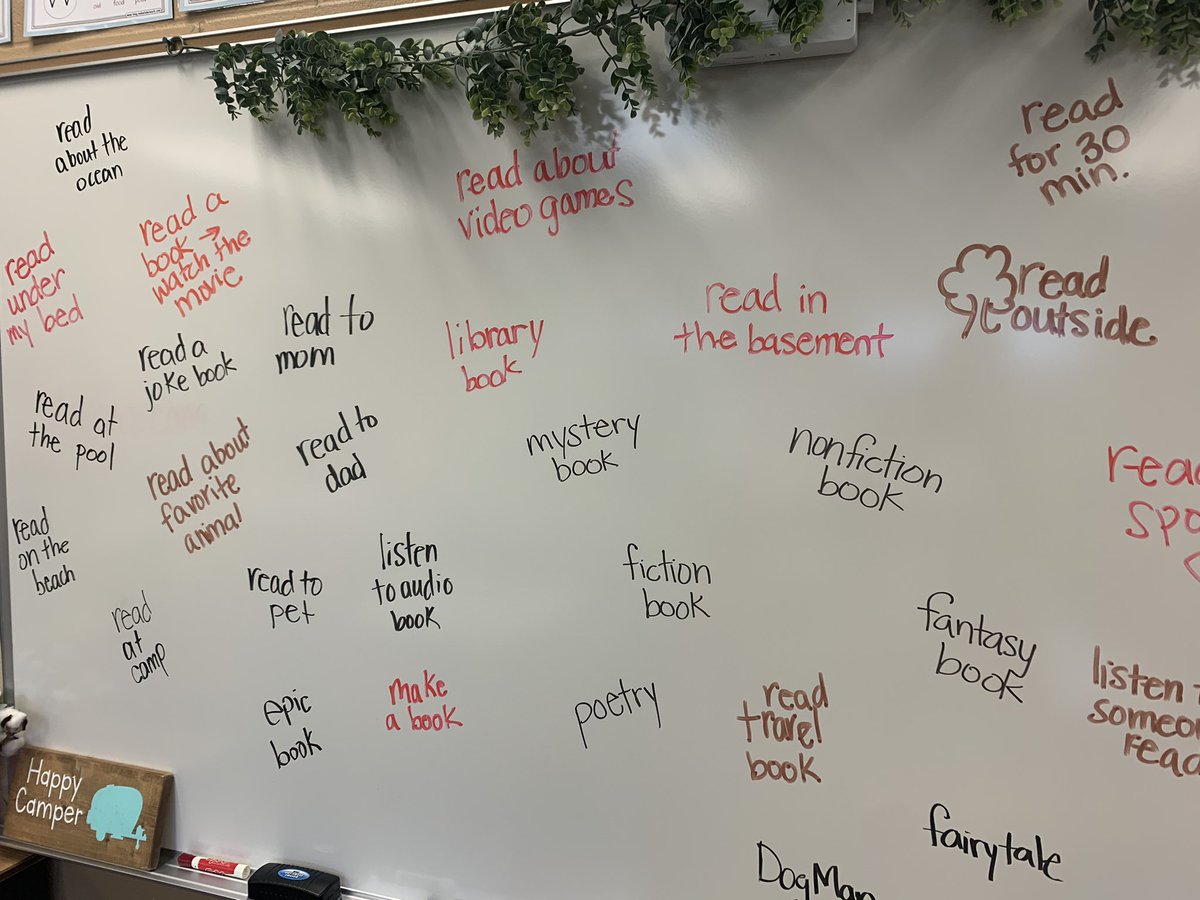 read
about the
ocean
read about
video games
read
for 30
min.
read a
book →
watch the
movie
read
under
my bed
read to
mom
library
book
read in
the basement
read
outside
read a
joke book
read at
the pool
read about
favorite
animal
read to
dad
mystery
book
nonfiction
book
read
on the
beach
read to
pet
listen
to audio
book
fiction
book
fantasy
book
read
at
camp
epic
book
make
a book
poetry
read
travel
book
listen
read
Happy
Camper
fairytale
DogMan